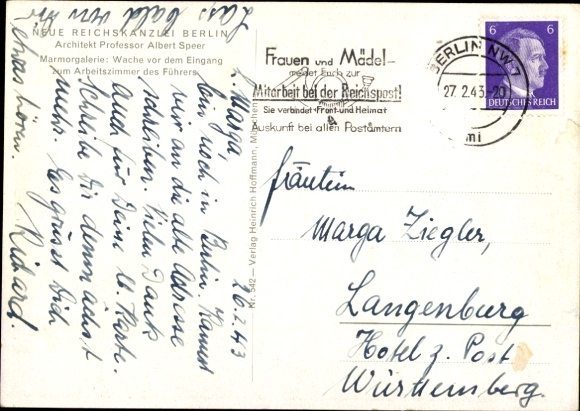 NEUE REICHSKANZLEI BERLIN
Architekt Professor Albert Speer
Marmorgalerie: Wache vor dem Eingang
zum Arbeitszimmer des Führers
26.2.43
L. Marga,
bin noch in Berlin. Kannst
mir an die alte Adresse
schreiben. Vielen Dank
auch für Deine lb. Karte.
Schreibe Dir demnächst
mehr. Es grüsst Dich
Richard.
Lass bald von Dir
etwas hören.
Nr. 542 — Verlag Heinrich Hoffmann, München
Frauen und Mädel-
meldet Euch zur
Mitarbeit bei der Reichspost!
Sie verbindet Front und Heimat
Auskunft bei allen Postämtern
BERLIN NW 7
27.2.43.-20
mi
6 6
DEUTSCHES REICH
Fräulein
Marga Ziegler,
Langenburg
Hotel z. Post
Württemberg.